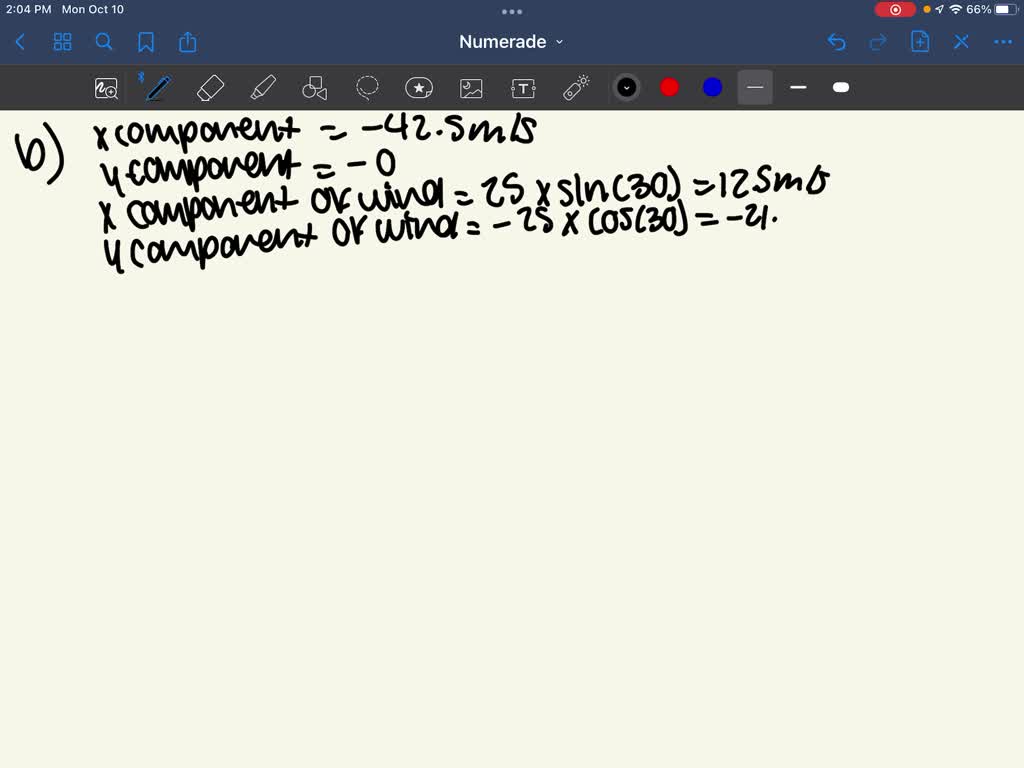 2:04 PM Mon Oct 10
66%
Numerade
b)
x component = -42.5m/s
y component = -0
x component of wind = 25 x sin(30) = 125m/s
y component of wind = -25 x cos(30) = -21.